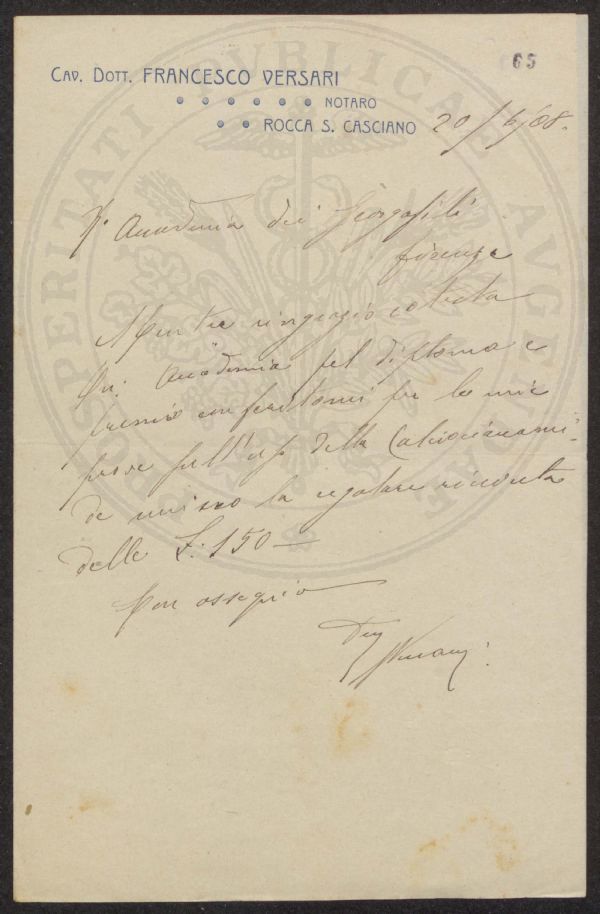 65
CAV. DOTT. FRANCESCO VERSARI
NOTARO
ROCCA S. CASCIANO
20/6/08.
R. Accademia dei Georgofili
Firenze
Mentre ringrazio cotesta
On: Accademia pel diploma e
premio conferitomi per le mie
prove sull'uso della Calciocianami-
de unisco la regolare ricevuta
delle L: 150 —
Con ossequio
Dev
FVersari
PROSPERITATI PUBLICAE AUGENDAE